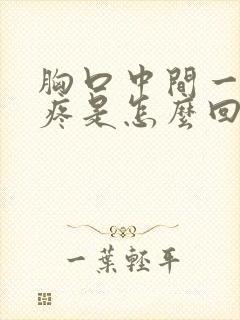 胸口中間一
疼是怎麼回
一葉輕平